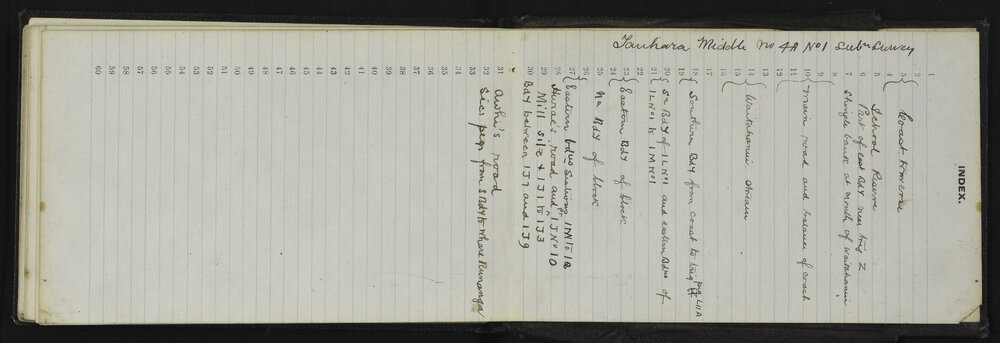 INDEX.
Tauhara Middle No 4A No 1 Subn Survey
1
2
3 Coast traverse
4
5 School Reserve
6 Part of east Bdy near trig Z
7 Shingle bank at mouth of Waitahanui
8
9
10 Main road and balance of coast
11
12
13
14 Waitahanui stream
15
16
17
18 Southern Bdy from coast to trig
19
20 Sn Bdy of 1L No 1 and eastern Bdys of
21 1L No 1 to 1M No 1
22
23 Eastern Bdy of block
24
25 Nn Bdy of block
26
27 Eastern bdys
28 road and 1J No 10
29 Mill Site & 1J1 to 1J3
30 Bdy between 1J7 and 1J9
31 Awhi's road
32 Sees pegs from S Bdy to where Runanga
33
34
35
36
37
38
39
40
41
42
43
44
45
46
47
48
49
50
51
52
53
54
55
56
57
58
59
60